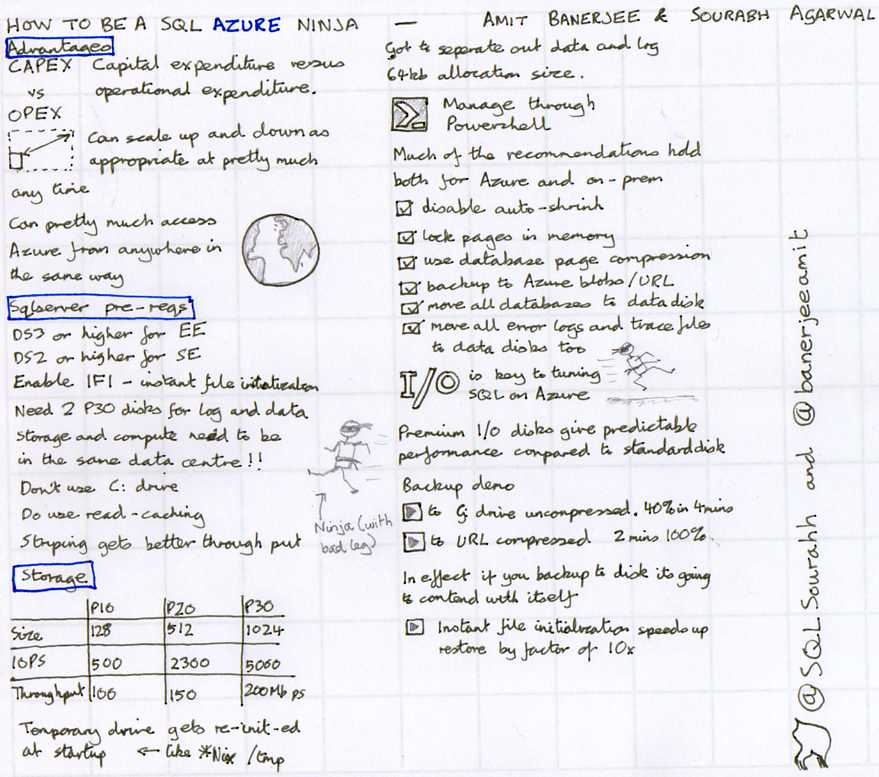 HOW TO BE A SQL AZURE NINJA — AMIT BANERJEE & SOURABH AGARWAL
Advantages
CAPEX Capital expenditure versus
vs operational expenditure.
OPEX
Can scale up and down as
appropriate at pretty much
any time
Can pretty much access
Azure from anywhere in
the same way
Sqlserver pre-reqs
DS3 or higher for EE
DS2 or higher for SE
Enable IFI - instant file initialization
Need 2 P30 disks for log and data
Storage and compute need to be
in the same data centre!!
Don't use C: drive
Do use read-caching
Striping gets better through put
Ninja (with
bad leg)
Storage
P10 P20 P30
Size 128 512 1024
IOPS 500 2300 5000
Throughput 100 150 200Mb ps
Temporary drive gets re-init-ed
at startup ← like *Nix /tmp
Got to seperate out data and log
64kb allocation size.
Manage through
Powershell
Much of the recommendations hold
both for Azure and on-prem
disable auto-shrink
lock pages in memory
use database page compression
backup to Azure blobs/URL
move all databases to data disk
move all error logs and trace files
to data disks too
I/O is key to tuning
SQL on Azure
Premium I/O disks give predictable
performance compared to standard disk
Backup demo
to G: drive uncompressed. 40% in 4mins
to URL compressed 2 mins 100%.
In effect if you backup to disk its going
to contend with itself
Instant file initialization speeds up
restore by factor of 10x
@SQLSourahh and @banerjeeamit